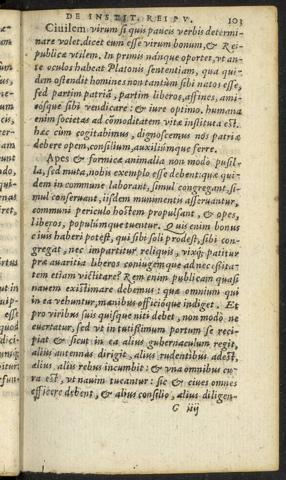 DE INSTIT. REIPV. 103
Ciuilem virum si quis paucis verbis determi-
nare volet, dicet eum esse virum bonum, & Rei-
publicæ vtilem. In primis nanque oportet, vt an-
te oculos habeat Platonis sententiam, qua qui-
dem ostendit homines non tantùm sibi natos esse,
sed partim patriæ, partim liberos, affines, ami-
cosque sibi vendicare: & iure optimo. humana
enim societas ad cōmoditatem vitæ instituta est.
hæc cùm cogitabimus, dignoscemus nos patriæ
debere opem, consilium, auxiliúmque ferre.
Apes & formicæ animalia non modo pusil-
la, sed muta, nobis exemplo esse debent: quæ qui-
dem in commune laborant, simul congregant, si-
mul conseruant, iisdem munimentis asseruantur,
communi periculo hostem propulsant, & opes,
liberos, populúmque tuentur. Quis enim bonus
ciuis haberi potest, qui sibi soli prodest, sibi con-
gregat, nec impartitur reliquis, vixq; patitur
præ auaritia liberos coniugémque adnecessita-
tem etiam victitare? Rem enim publicam quasi
nauem existimare debemus: quæ omnium qui
in ea vehuntur, manibus officióque indiget. Et
pro viribus suis quisque niti debet, non modò ne
euertatur, sed vt in tutissimum portum se reci-
piat & sicut in ea alius gubernaculum regit,
alius antennas dirigit, alius rudentibus adest,
alius, alius rebus incumbit: & vna omnibus cu-
ra est, vt nauim tueantur: sic & ciues omnes
efficere debent, & alius consilio, alius diligen-
G iiij